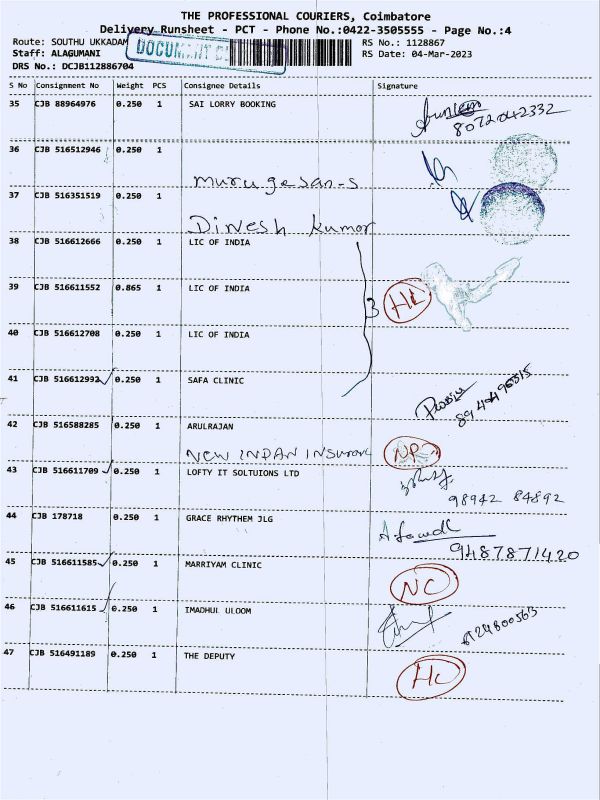 THE PROFESSIONAL COURIERS, Coimbatore
Delivery Runsheet - PCT - Phone No.:0422-3505555 - Page No.:4
Route: SOUTHU UKKADAM
DOCUMENT
RS No.: 1128867
Staff: ALAGUMANI
RS Date: 04-Mar-2023
DRS No.: DCJB112886704
S No Consignment No Weight PCS Consignee Details Signature
35 CJB 88964976 0.250 1 SAI LORRY BOOKING
8072042332
36 CJB 516512946 0.250 1
Murugesan-s
37 CJB 516351519 0.250 1
Dinesh kumar
38 CJB 516612666 0.250 1 LIC OF INDIA
39 CJB 516611552 0.865 1 LIC OF INDIA 3 HL
40 CJB 516612708 0.250 1 LIC OF INDIA
41 CJB 516612992 0.250 1 SAFA CLINIC
42 CJB 516588285 0.250 1 ARULRAJAN
NEW INDAN INSURAN NP
43 CJB 516611709 0.250 1 LOFTY IT SOLTUIONS LTD
98942 84892
44 CJB 178718 0.250 1 GRACE RHYTHEM JLG
9487871420
45 CJB 516611585 0.250 1 MARRIYAM CLINIC NC
46 CJB 516611615 0.250 1 IMADHUL ULOOM
8124800563
47 CJB 516491189 0.250 1 THE DEPUTY HL